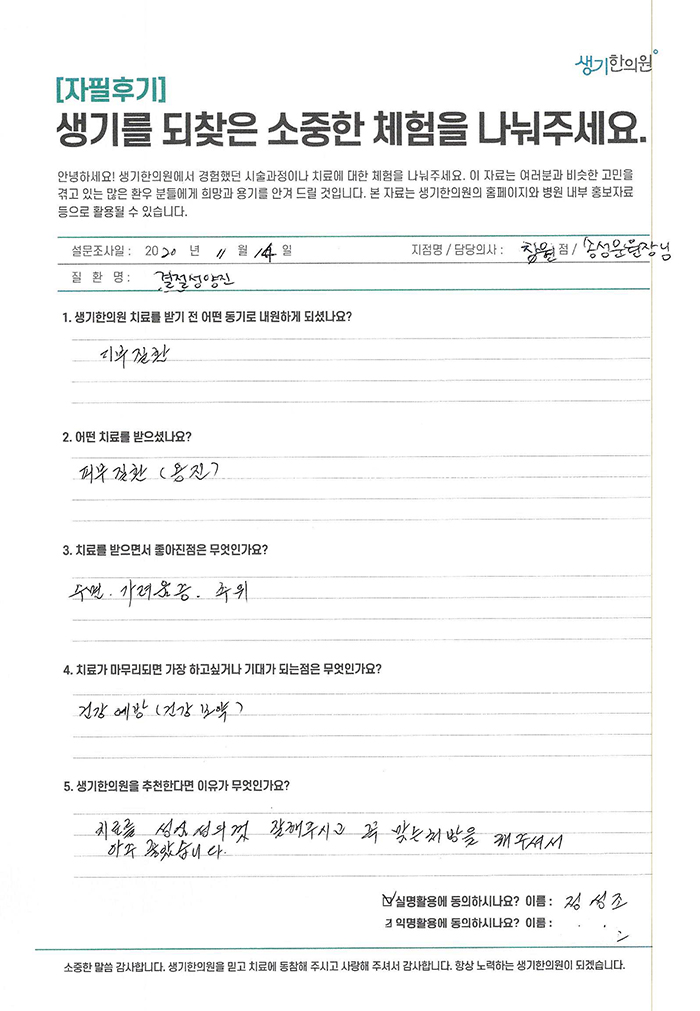 생기한의원
[자필후기]
생기를 되찾은 소중한 체험을 나눠주세요.
안녕하세요! 생기한의원에서 경험했던 시술과정이나 치료에 대한 체험을 나눠주세요. 이 자료는 여러분과 비슷한 고민을
겪고 있는 많은 환우 분들에게 희망과 용기를 안겨 드릴 것입니다. 본 자료는 생기한의원의 홈페이지와 병원 내부 홍보자료
등으로 활용될 수 있습니다.
설문조사일 : 2020 년 11 월 14 일 지점명 / 담당의사 : 창원점 / 송성문원장님
질 환 명 : 결절성양진
1. 생기한의원 치료를 받기 전 어떤 동기로 내원하게 되셨나요?
피부질환
2. 어떤 치료를 받으셨나요?
피부질환 (양진)
3. 치료를 받으면서 좋아진점은 무엇인가요?
수면. 가려움증. 추위
4. 치료가 마무리되면 가장 하고싶거나 기대가 되는점은 무엇인가요?
건강예방 (건강보약)
5. 생기한의원을 추천한다면 이유가 무엇인가요?
치료를 성심성의껏 잘해주시고 꼭 맞는처방을 해주셔서
아주 좋았습니다.
실명활용에 동의하시나요? 이름 : 정성조
익명활용에 동의하시나요? 이름 :
소중한 말씀 감사합니다. 생기한의원을 믿고 치료에 동참해 주시고 사랑해 주셔서 감사합니다. 항상 노력하는 생기한의원이 되겠습니다.